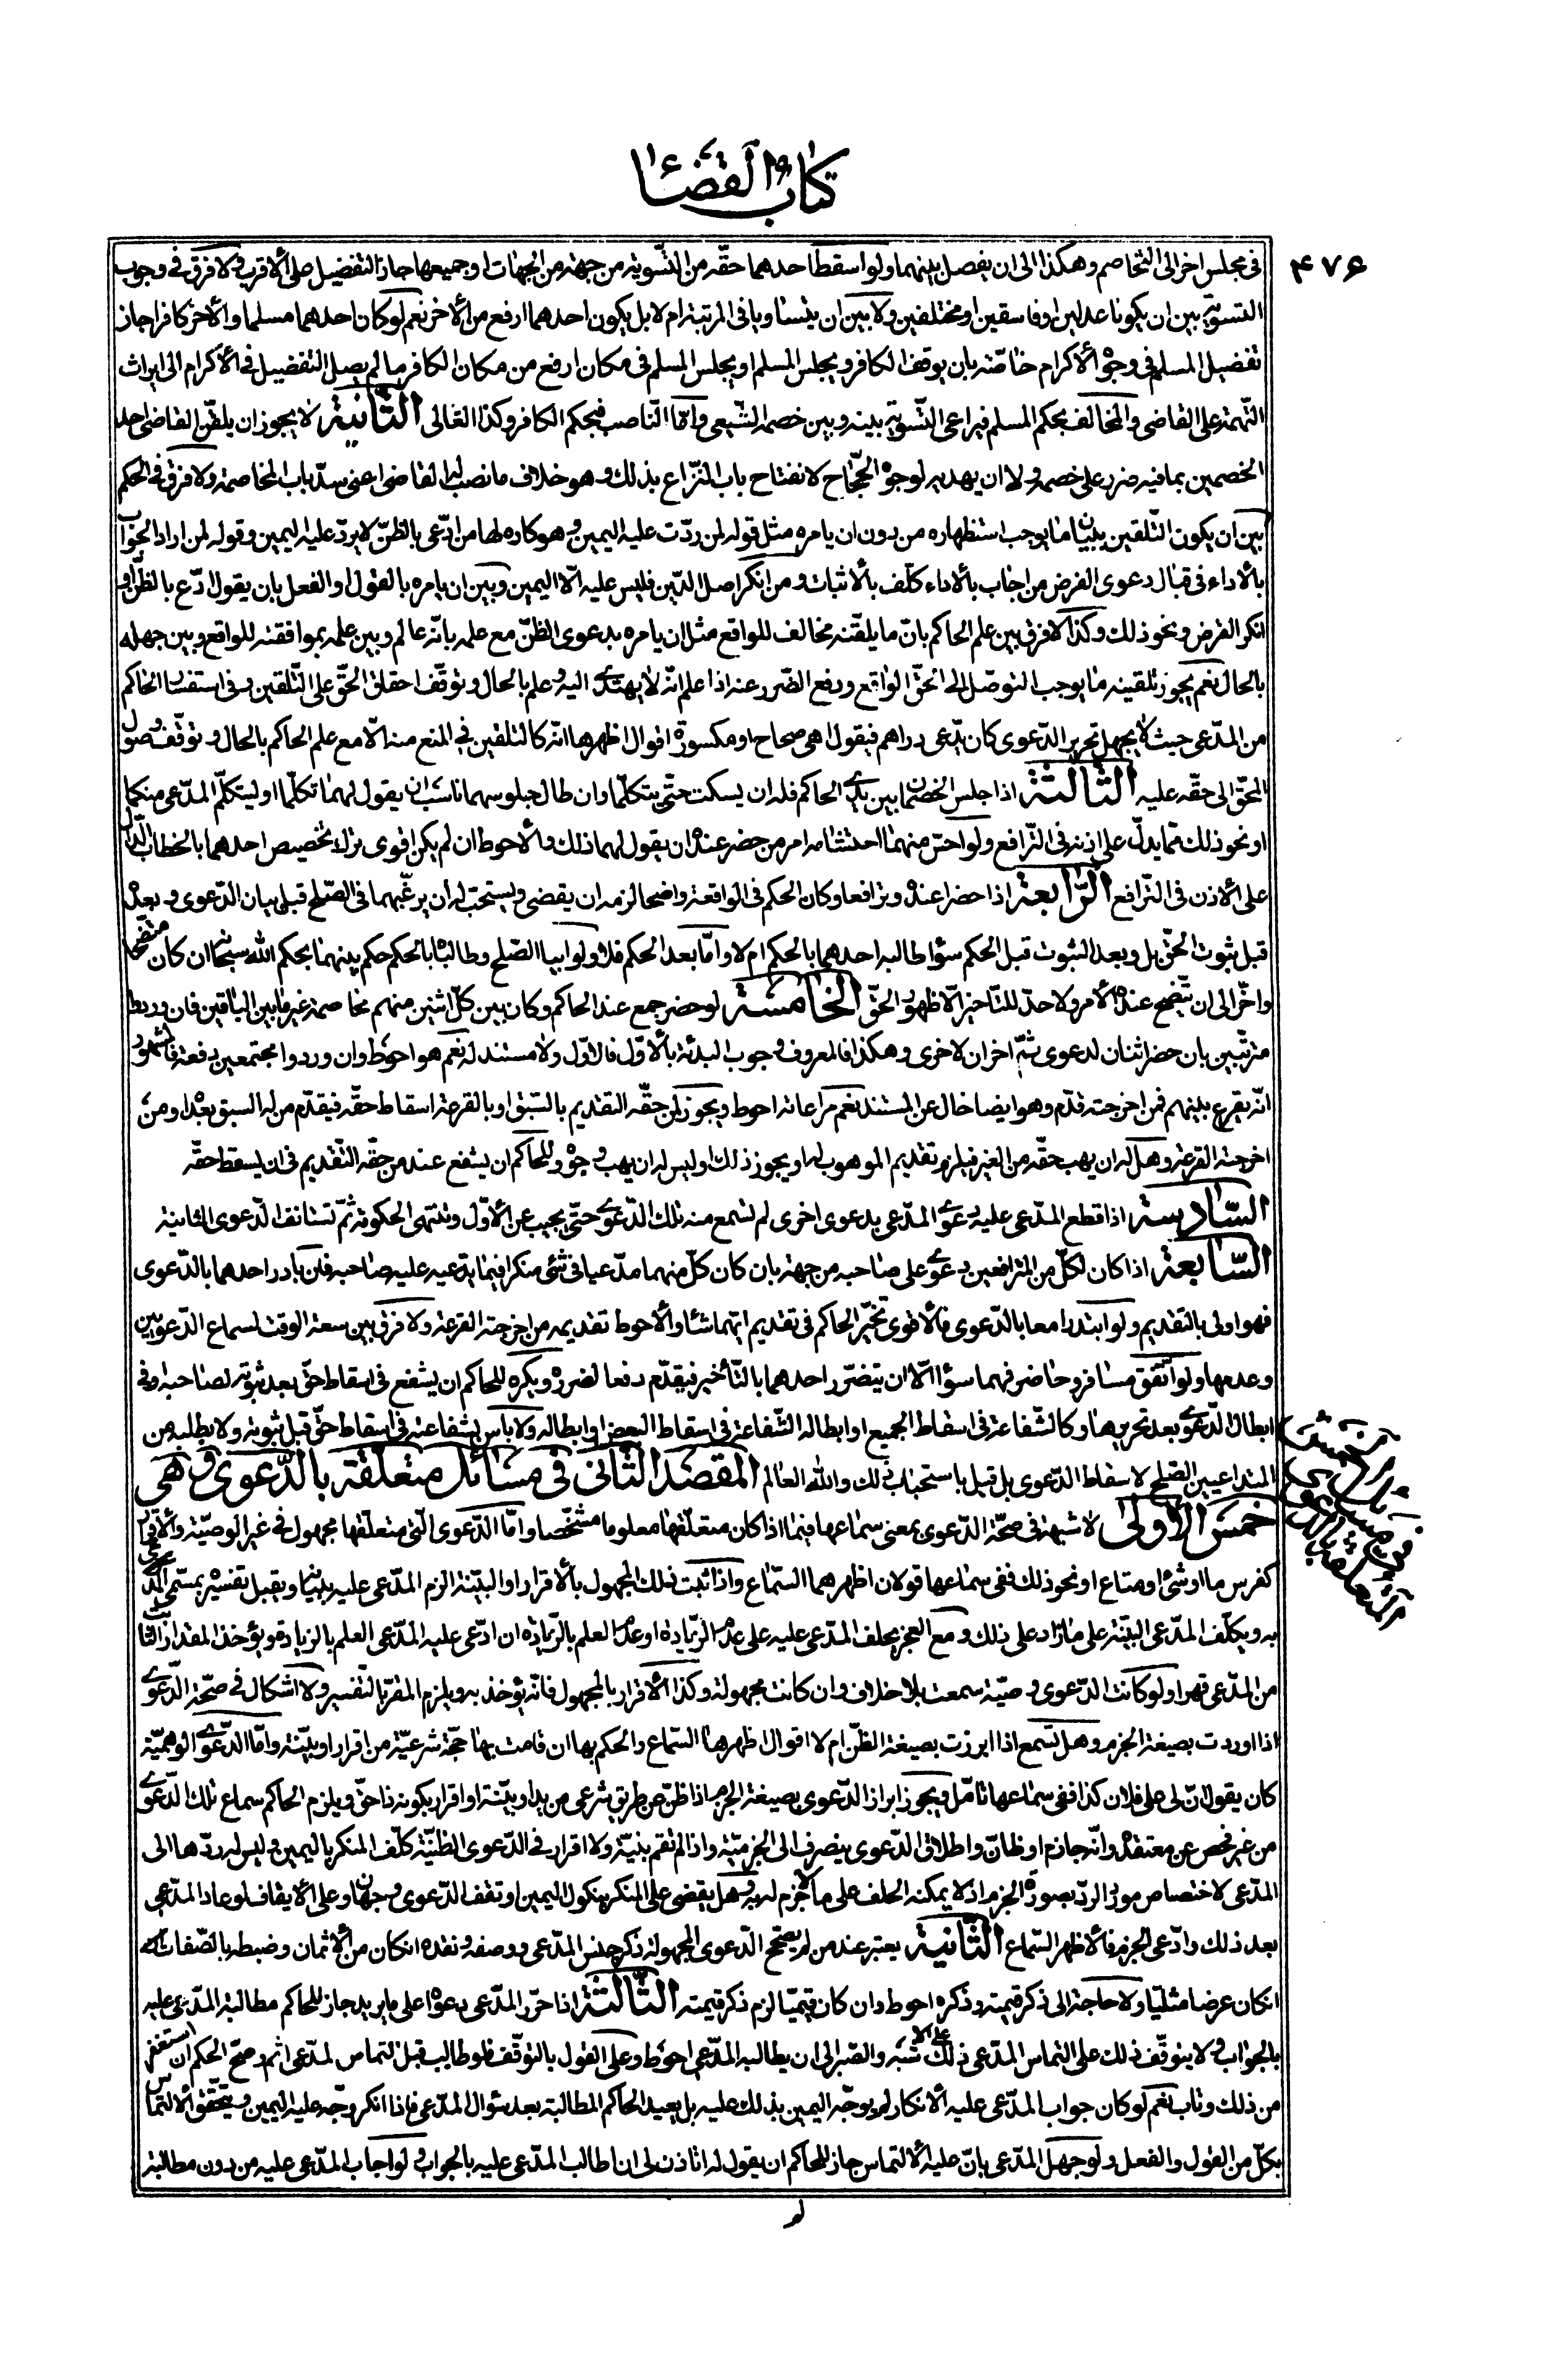 كتاب القضاء
۴۷۶
فى مجلس اخر الى التخاصم وهكذا الى ان يفصل بينهما ولو اسقط احدهما حقّه من التّسوية من جهة من الجهات او جميعها جاز التفضيل على الاقرب ولا فرق فى وجوب
التّسوية بين ان يكونا عدلين او فاسقين او مختلفين ولا بين ان يتساويا فى المرتبة ام لا بل يكون احدهما ارفع من الأخر نعم لو كان احدهما مسلما والأخر كافرا جاز
تفضيل المسلم فى وجوه الأكرام خاصّة بان يوقف الكافر ويجلس المسلم او يجلس المسلم فى مكان ارفع من مكان الكافر ما لم يصل التفضيل فى الأكرام الى ايراث
التّهمة على القاضى والمخالف بحكم المسلم فيراعى التّسوية بينه وبين خصمه الشّيعى وامّا النّاصب فبحكم الكافر وكذا الغالى الثّانية لا يجوز ان يلقّن القاضى احد
الخصمين بما فيه ضرر على خصمه ولا ان يهديه لوجوه الحجّاج لانفتاح باب النّزاع بذلك وهو خلاف ما نصب له القاضى اعنى سدّ باب المخاصمة ولا فرق فى الحكم
بين ان يكون التّلقين ببيان ما يوجب استظهاره من دون ان يامره مثل قوله لمن ردّت عليه اليمين وهو كاره لها من ادّعى بالظنّ لا يردّ عليه اليمين وقوله لمن اراد الجواب
بالأداء فى قبال دعوى القرض من اجاب بالأداء كلّف بالأثبات ومن انكر اصل الدّين فليس عليه الّا اليمين وبين ان يامره بالقول او الفعل بان يقول ادّع بالظنّ او
انكر القرض ونحو ذلك وكذا لا فرق بين علم الحاكم بانّ ما يلقّنه مخالف للواقع مثل ان يامره بدعوى الظنّ مع علمه بانّه عالم وبين علمه بموافقته للواقع وبين جهله
بالحال نعم يجوز تلقينه ما يوجب التوصّل الى الحقّ الواقع ودفع الضّرر عنه اذا علم انّه لا يهتدى اليه وعلم بالحال وتوقّف احقاق الحقّ على التّلقين وفى استفسار الحاكم
من المدّعى حيث لا يجهل تحرير الدّعوى كان يدّعى دراهم فيقول اهى صحاح او مكسورة اقوال اظهرها انّه كالتلقين فى المنع منه الّا مع علم الحاكم بالحال وتوقّف وصول
المحقّ الى حقّه عليه الثّالثة اذا جلس الخصمان بين يدى الحاكم فله ان يسكت حتّى يتكلّما وان طال جلوسهما ناسب ان يقول لهما تكلّما او ليتكلّم المدّعى منكما
او نحو ذلك ممّا يدلّ على اذنه فى التّرافع ولو احسّ منهما احتشامه امر من حضر عنده ان يقول لهما ذلك والأحوط ان لم يكن اقوى ترك تخصيص احدهما بالخطاب الدّال
على الأذن فى التّرافع الرّابعة اذا حضرا عنده وترافعا وكان الحكم فى الواقعة واضحا لزمه ان يقضى ويستحبّ له ان يرغّبهما فى الصّلح قبل بيان الدّعوى وبعده
قبل ثبوت الحقّ بل وبعد الثبوت قبل الحكم سواء طالبه احدهما بالحكم ام لا وامّا بعد الحكم فلا ولو ابيا الصّلح وطالباه بالحكم حكم بينهما بحكم الله سبحانه ان كان متّضحا
واخّر الى ان تتّضح عنده الأمر ولا حدّ للتّاخير الّا ظهور الحقّ الخامسة لو حضر جمع عند الحاكم وكان بين كلّ اثنين منهم مخاصمة غير ما بين الباقين فان وردوا
مترتّبين بان حضر اثنان لدعوى ثمّ اخران لاخرى وهكذا فالمعروف وجوب البدئة بالأوّل فالاوّل ولا مستند له نعم هو احوط وان وردوا مجتمعين دفعة فالمشهور
انّه يقرع بينهم فمن اخرجته قدّم وهو ايضا خال عن المستند نعم مراعاته احوط ويجوز لمن حقّه التقديم بالسّبق او بالقرعة اسقاط حقّه فيقدّم من له السبق بعده او من
اخرجته القرعة وهل له ان يهب حقّه من الغير فيلزم تقديم الموهوب له او يجوز ذلك او ليس له ان يهب وجوه وللحاكم ان يشفع عند من حقّه التّقديم فى ان يسقط حقّه
السّادسة اذا قطع المدّعى عليه دعوى المدّعى بدعوى اخرى لم تسمع منه تلك الدّعوى حتّى يجيب عن الأوّل وتنتهى الحكومة ثمّ تستانف الدّعوى الثانية
السّابعة اذا كان لكلّ من المترافعين دعوى على صاحبه من جهة بان كان كلّ منهما مدّعيا فى شئ منكرا فيما يدّعيه عليه صاحبه فان بادر احدهما بالدّعوى
فهو اولى بالتقديم ولو ابتدرا معا بالدّعوى فالأقوى تخيّر الحاكم فى تقديم ايّهما شاء والأحوط تقديم من اخرجته القرعة ولا فرق بين سعة الوقت لسماع الدّعويين
وعدمها ولو اتّفق مسافر وحاضر فهما سواء الّا ان يتضرّر احدهما بالتّأخير فيقدّم دفعا لضرره ويكره للحاكم ان يشفع فى اسقاط حقّ بعد ثبوته لصاحبه او فى
ابطال الدّعوى بعد تحريرها وكالشّفاعة فى اسقاط الجميع او ابطاله الشّفاعة فى اسقاط البعض او ابطاله ولا بأس بشفاعته فى اسقاط حقّ قبل ثبوته ولا بطلبه من
المتداعيين الصّلح لاسقاط الدّعوى بل قيل باستحباب ذلك والله العالم المقصد الثّانى فى مسائل متعلّقة بالدّعوى وهى
خمس الاولى لا شبهة فى صحّة الدّعوى بمعنى سماعها فيما اذا كان متعلّقها معلوما مشخّصا وامّا الدّعوى الّتى متعلّقها مجهول فى غير الوصيّة والأقرار
كفرس ما او شئ او متاع او نحو ذلك ففى سماعها قولان اظهرهما السّماع واذا ثبت ذلك المجهول بالأقرار او البيّنة الزم المدّعى عليه ببيانه ويقبل تفسيره بمسمّى المدّعى
به ويكلّف المدّعى البيّنة على ما زاد على ذلك ومع العجز يحلف المدّعى عليه على عدم الزّيادة او عدم العلم بالزّيادة ان ادّعى عليه المدّعى العلم بالزيادة ويؤخذ المقدار الثابت
من المدّعى قهرا ولو كانت الدّعوى وصيّة سمعت بلا خلاف وان كانت مجهولة وكذا الأقرار بالمجهول فانّه يؤخذ به ويلزم المقرّ بالتّفسير ولا اشكال فى صحّة الدّعوى
اذا اوردت بصيغة الجزم وهل تسمع اذا ابرزت بصيغة الظّن ام لا اقوال اظهرها السّماع والحكم بها ان قامت بها حجّة شرعيّة من اقرار او بيّنة وامّا الدّعوى الوهميّة
كان يقول انّ لى على فلان كذا ففى سماعها تامّل ويجوز ابراز الدّعوى بصيغة الجزم اذا ظنّ عن طريق شرعى من يد او بيّنة او اقرار بكونه ذا حقّ ويلزم الحاكم سماع تلك الدّعوى
من غير فحص عن معتقده وانّه جازم او ظانّ واطلاق الدّعوى ينصرف الى الجزميّة واذا لم تقم بنيّة ولا اقرار فى الدّعوى الظنّيّة كلّف المنكر باليمين وليس له ردّها الى
المدّعى لاختصاص مورد الردّ بصورة الجزم اذ لا يمكنه الحلف على ما لا جزم له به وهل يقضى على المنكر بنكول اليمين او تقف الدّعوى وجهان وعلى الأيقاف لو عاد المدّعى
بعد ذلك وادّعى الجزم فالأظهر السّماع الثّانية يعتبر عند من لم يصحّح الدّعوى المجهولة ذكر جنس المدّعى ووصفه ونقده انكان من الأثمان وضبطه بالصّفات
انكان عرضا مثليّا ولا حاجة الى ذكر قيمته وذكره احوط وان كان قيميّا لزم ذكر قيمته الثّالثة اذا حرّر المدّعى دعواه على ما يريد جاز للحاكم مطالبة المدّعى عليه
بالجواب ولا يتوقّف ذلك على التماس المدّعى ذلك على الاشبه والصّبر الى ان يطالبه المدّعى احوط وعلى القول بالتوقّف فلو طالب قبل التماس المدّعى اثم وصحّ الحكم ان استغفر
من ذلك وتاب نعم لو كان جواب المدّعى عليه الأنكار لم يوجّه اليمين بذلك عليه بل يعيد الحاكم المطالبة بعد سؤال المدّعى فاذا انكر وجّه عليه اليمين ويتحقّق الألتماس
بكلّ من القول والفعل ولو جهل المدّعى بانّ عليه الالتماس جاز للحاكم ان يقول له اتاذن لى ان اطالب المدّعى عليه بالجواب ولو اجاب المدّعى عليه من دون مطالبة